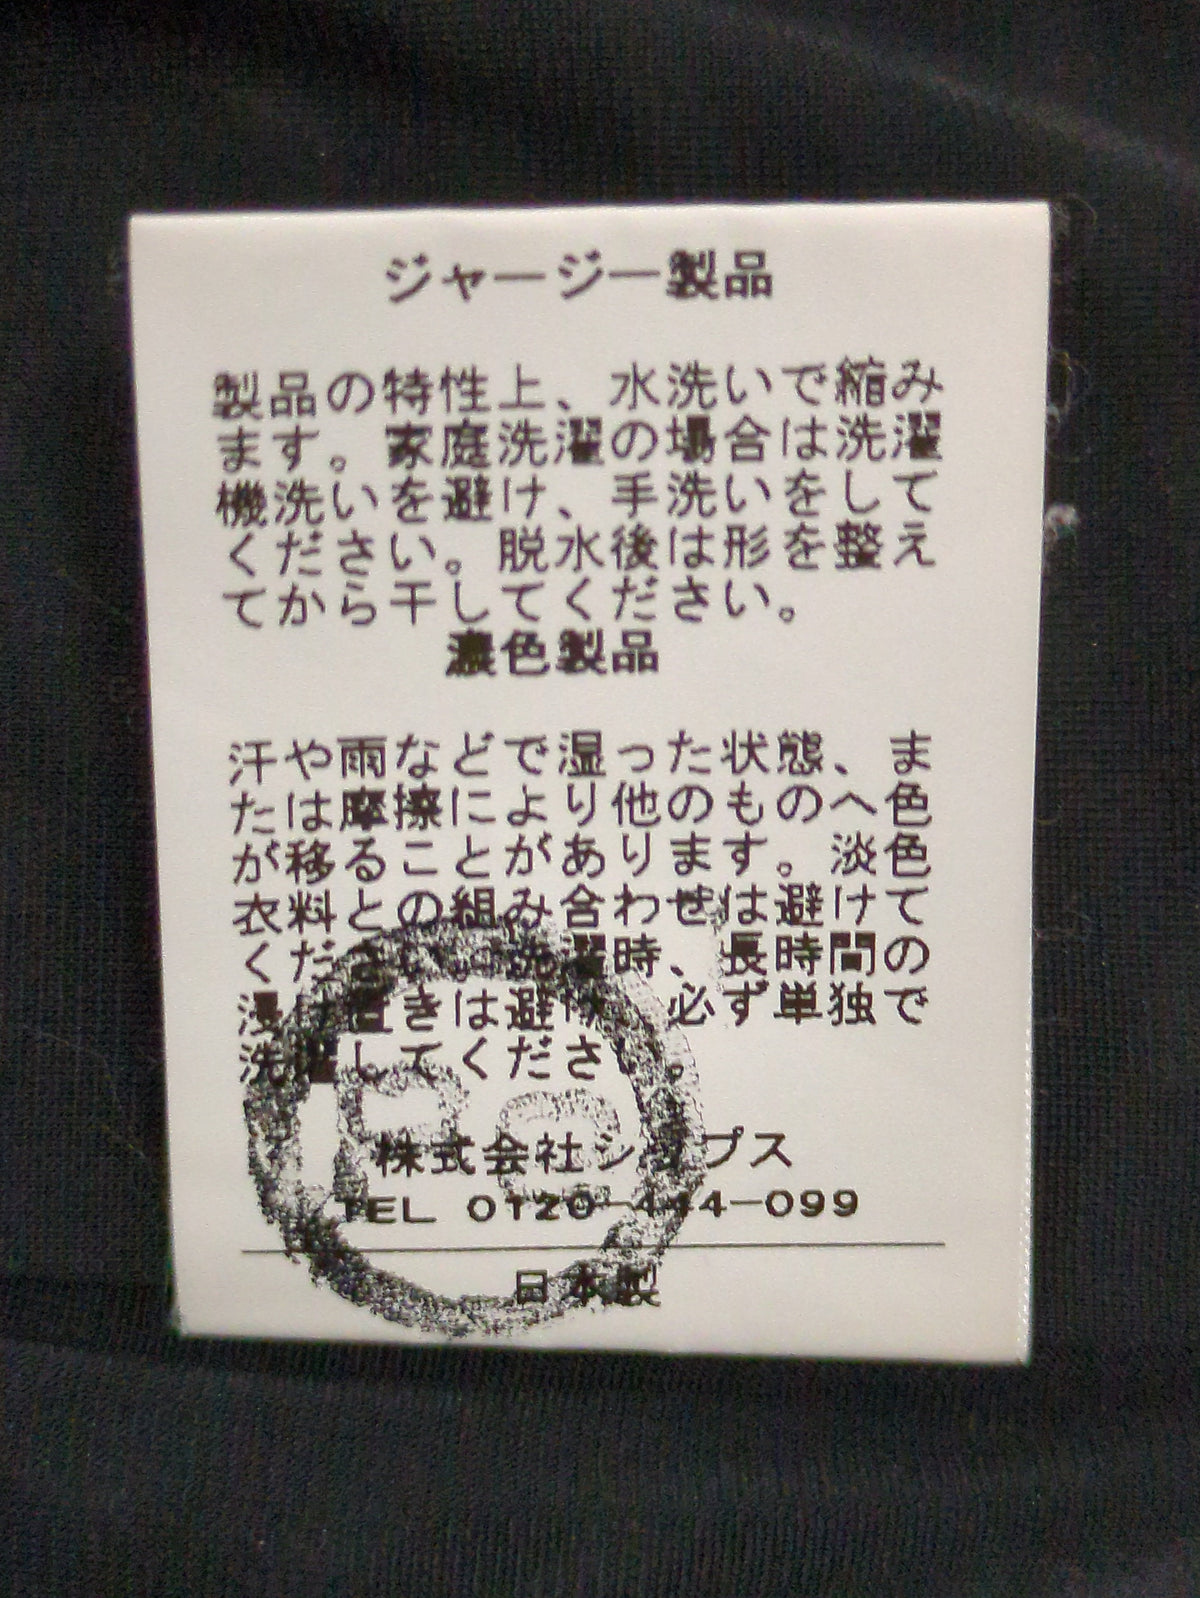 ジャージー製品
製品の特性上、水洗いで縮み
ます。家庭洗濯の場合は洗濯
機洗いを避け、手洗いをして
ください。脱水後は形を整え
てから干してください。
濃色製品
汗や雨などで湿った状態、ま
たは摩擦により他のものへ色
が移ることがあります。淡色
衣料との組み合わせは避けて
ください。洗濯時、長時間の
浸け置きは避け、必ず単独で
洗濯してください。
株式会社シップス
TEL 0120-444-099
日本製